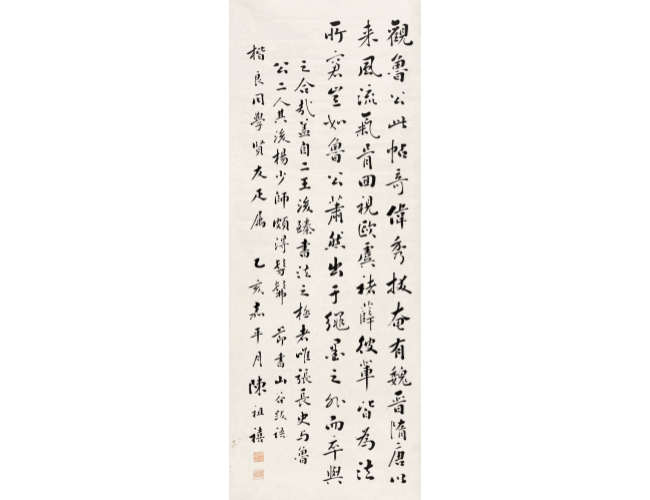 觀魯公此帖奇偉秀拔奄有魏晉隋唐以
来風流氣骨回視歐虞褚薛彼軰皆為法
所窘豈如魯公蕭然出于繩墨之外而卒與
之合哉蓋自二王後臻書法之極者唯張長史与魯
公二人其後楊少師頗得髣髴 節書山谷跋語
楷良同學賢友正屬 乙亥嘉平月陳祖禧